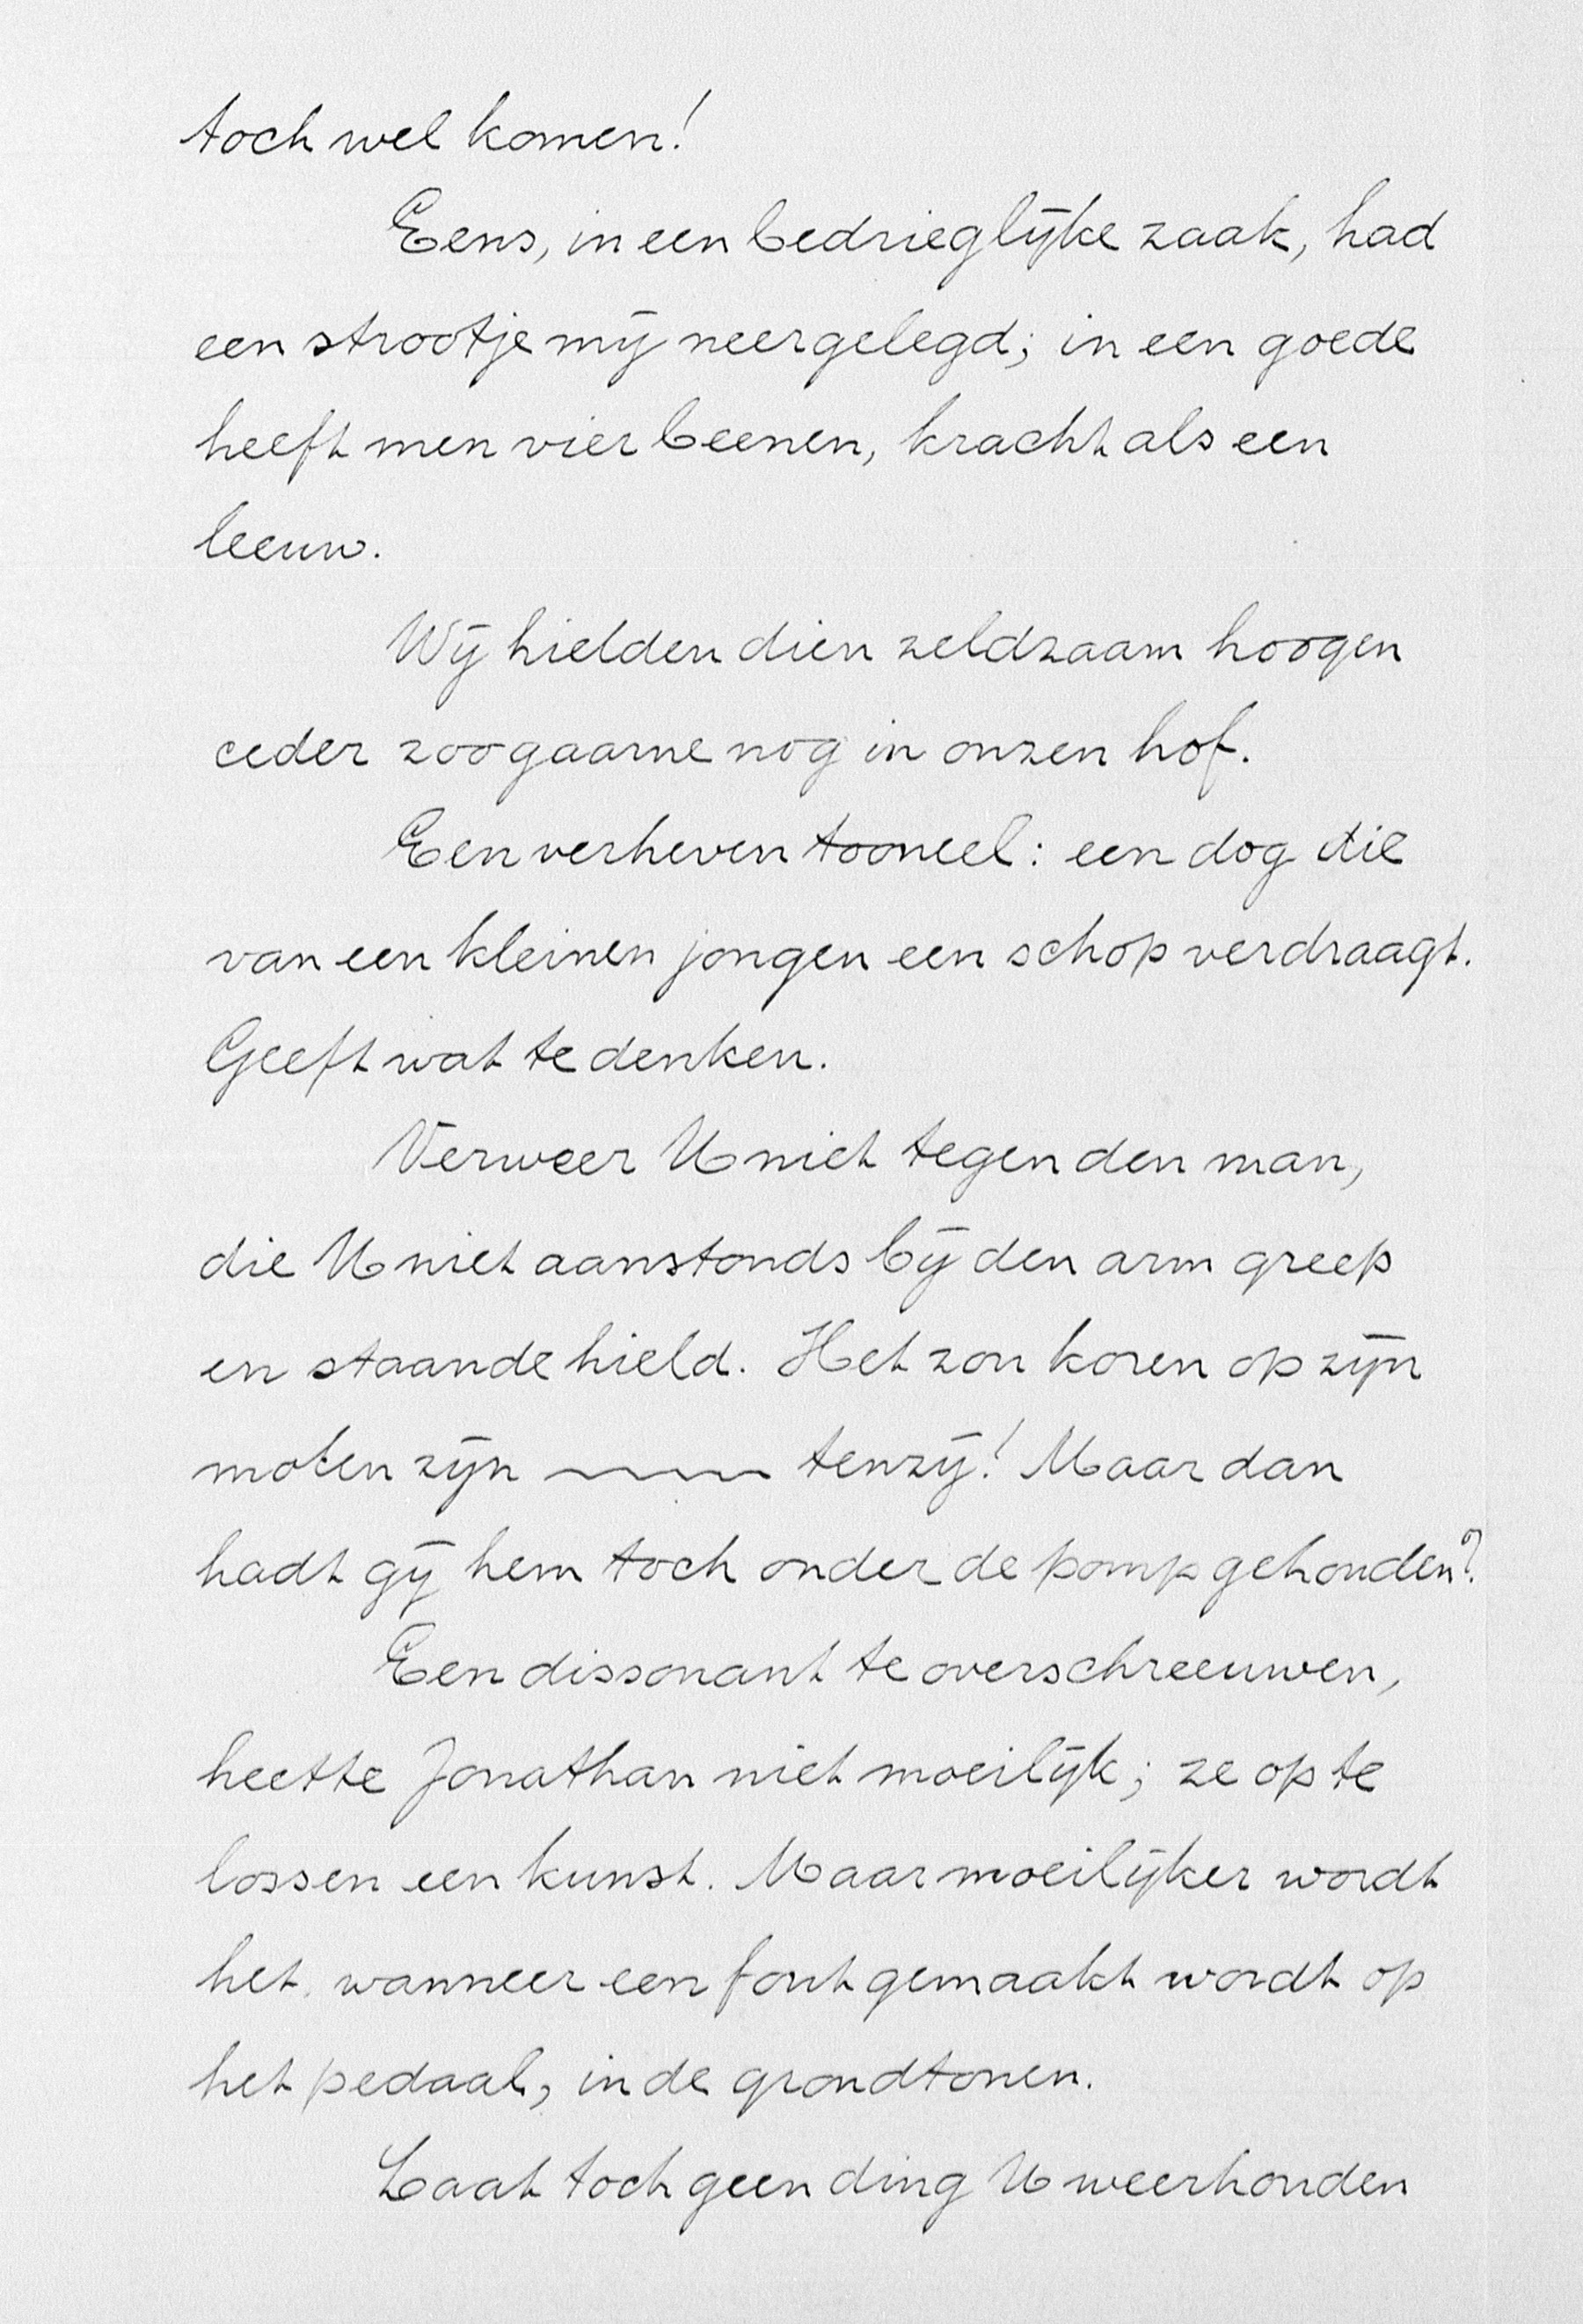 toch wel komen!
Eens, in een bedrieglijke zaak, had
een strootje mij neergelegd; in een goede
heeft men vier beenen, kracht als een
leeuw.
Wij hielden dien zeldzaam hoogen
ceder zoo gaarne nog in onzen hof.
Een verheven tooneel: een dog die
van een kleinen jongen een schop verdraagt.
Geeft wat te denken.
Verweer U niet tegen den man,
die U niet aanstonds bij den arm greep
en staande hield. Het zou koren op zijn
molen zijn ——— tenzij! Maar dan
hadt gij hem toch onder de pomp gehouden?
Een dissonant te overschreeuwen,
heette Jonathan niet moeilijk; ze op te
lossen een kunst. Maar moeilijker wordt
het, wanneer een fout gemaakt wordt op
het pedaal, in de grondtonen.
Laat toch geen ding U weerhouden